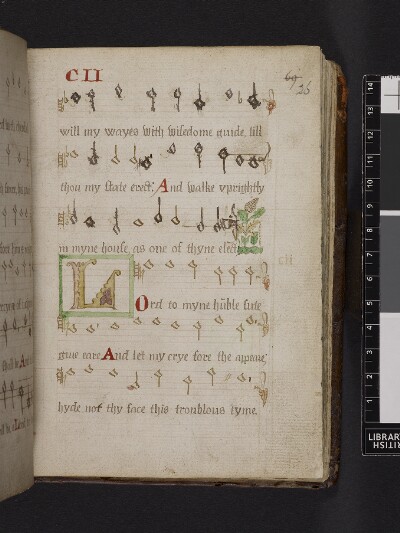 CII
69
26
will my wayes with wisedome guide, till
thou my state erect: And walke vprightly
in myne house as one of thyne elect
LOrd to myne hūble sute
giue eare And let my crye fore the appeare
hyde not thy face this troublous tyme.
cii
14
13
12
11
10
9
8
7
6
5
4
3
2
1
LIBRARY